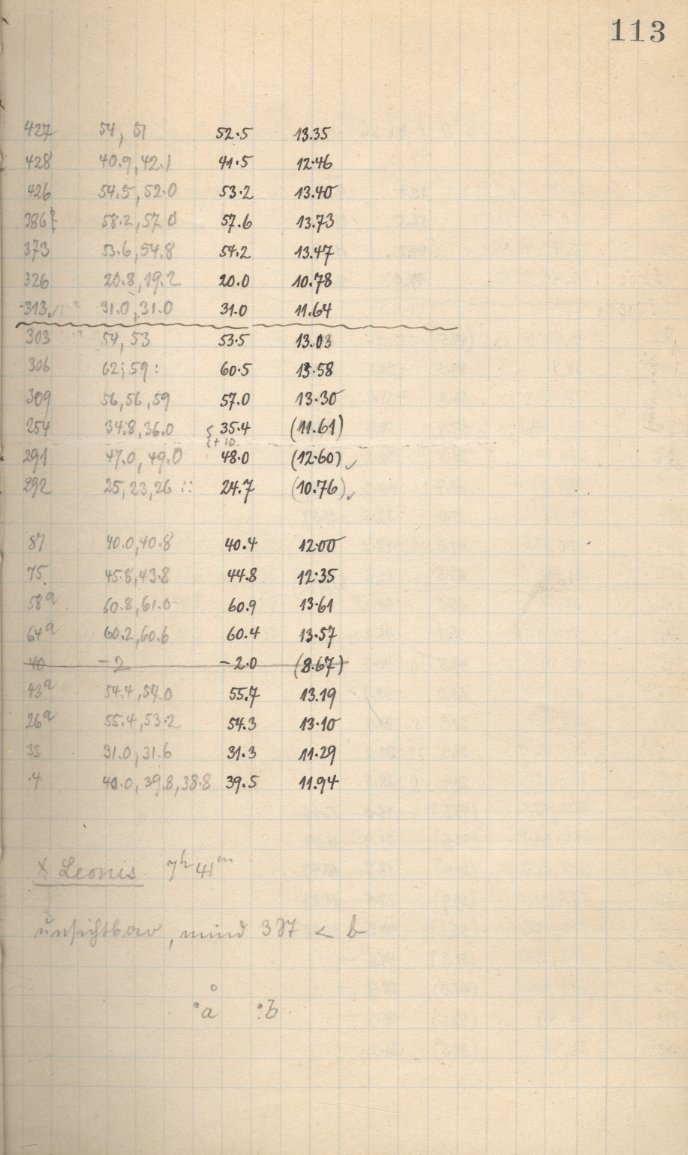 113
427 54, 51 52.5 13.35
428 40.9, 42.1 41.5 12.46
426 54.5, 52.0 53.2 13.40
386 58.2, 57.0 57.6 13.73
373 53.6, 54.8 54.2 13.47
326 20.8, 19.2 20.0 10.78
313 31.0, 31.0 31.0 11.64
303 54, 53 53.5 13.03
306 62; 59: 60.5 13.58
309 56, 56, 59 57.0 13.30
254 34.8, 36.0 35.4 (11.61)
291 47.0, 49.0 48.0 (12.60)
292 25, 23, 26 :: 24.7 (10.76)
87 40.0, 40.8 40.4 12.00
75 45.8, 43.8 44.8 12.35
58a 60.8, 61.0 60.9 13.61
64a 60.2, 60.6 60.4 13.57
40 -2 -2.0 (8.67)
43a 54.4, 57.0 55.7 13.19
26a 55.4, 53.2 54.3 13.10
33 31.0, 31.6 31.3 11.29
4 40.0, 39.8, 38.8 39.5 11.94
X Leonis 7h 41m
unsichtbar, mind < b
a b